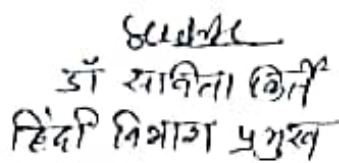 डॉ सविता किर्ते
हिंदी विभाग प्रमुख